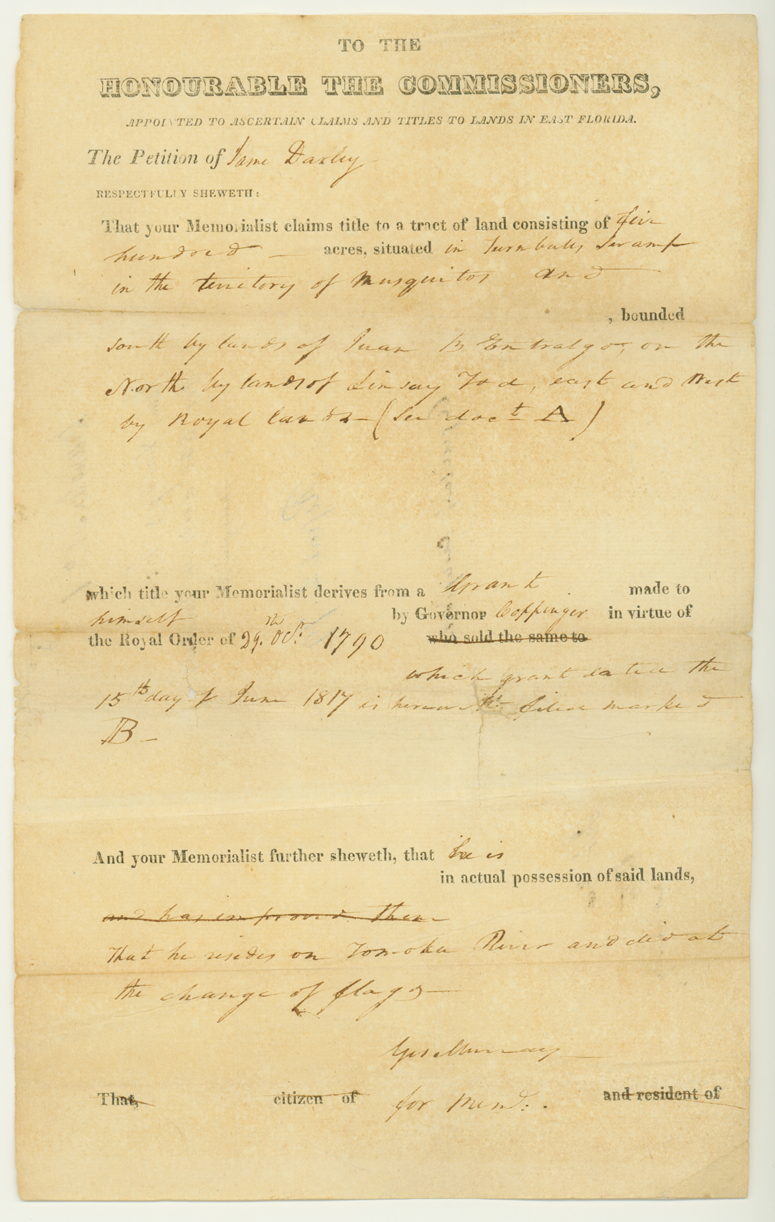 TO THE
HONOURABLE THE COMMISSIONERS,
APPOINTED TO ASCERTAIN CLAIMS AND TITLES TO LANDS IN EAST FLORIDA.
The Petition of Jame Darley
RESPECTFULLY SHEWETH:
That your Memorialist claims title to a tract of land consisting of five
hundred — acres, situated in Turnbulls Swamp
in the territory of Musquitos and
, bounded
south by lands of Juan B Entralgo, on the
North by lands of Linsay Tod, east and West
by Royal lands — (See doct A)
which title your Memorialist derives from a Grant made to
himself by Governor Coppinger in virtue of
the Royal Order of 29th Oct. 1790 who sold the same to
which grant dated the
15th day of June 1817 is herewth filed marked
B —
And your Memorialist further sheweth, that he is
in actual possession of said lands,
and has improved them
That he resides on Tomoka River and did at
the change of flags —
Geo Murray
That, citizen of for Memd. and resident of